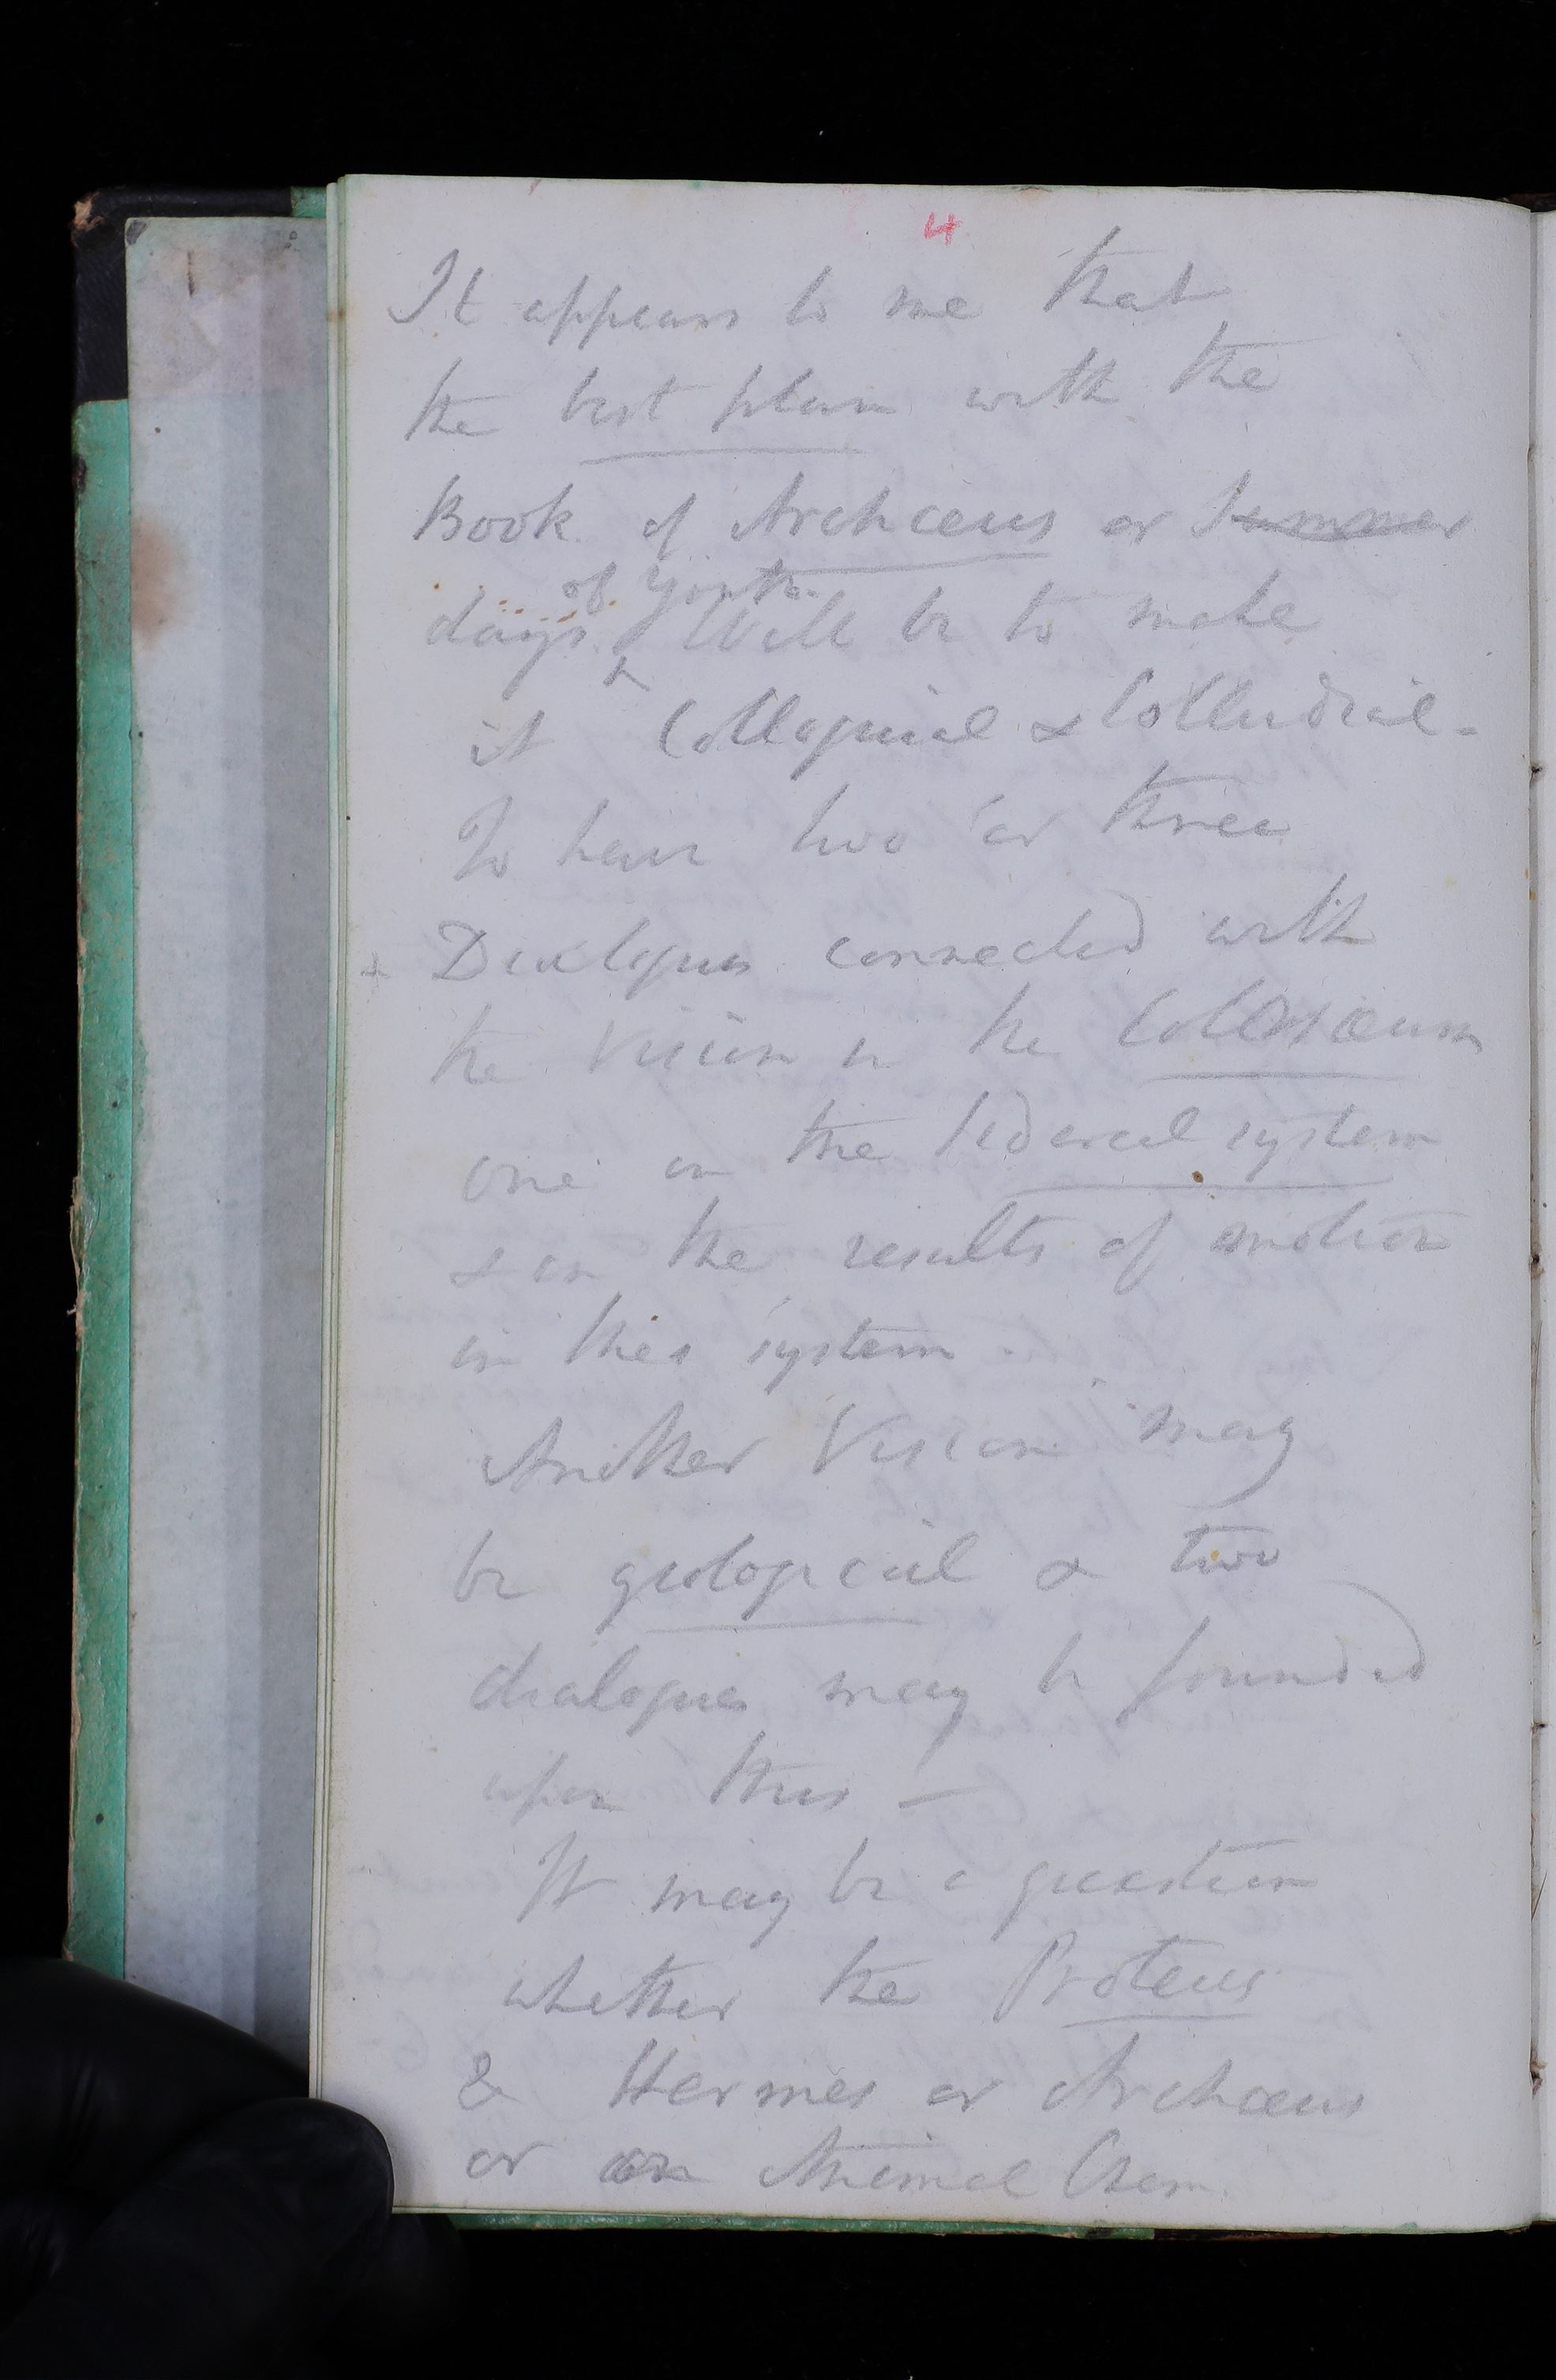 4
It appears to me that
the best plan with the
Book of Archæus or Summer
of Youth.
days Will be to make
it Colloquial & Colludial -
To have two or three
+ Dialogues connected with
the Vision in the Colosæum
one on the federal system
& on the results of motion
in this system -
Another Vision may
be geological & two
dialogues may be founded
upon this -
It may be a question
whether the Proteus
& Hermes or Archæus
or on Animal Chem.